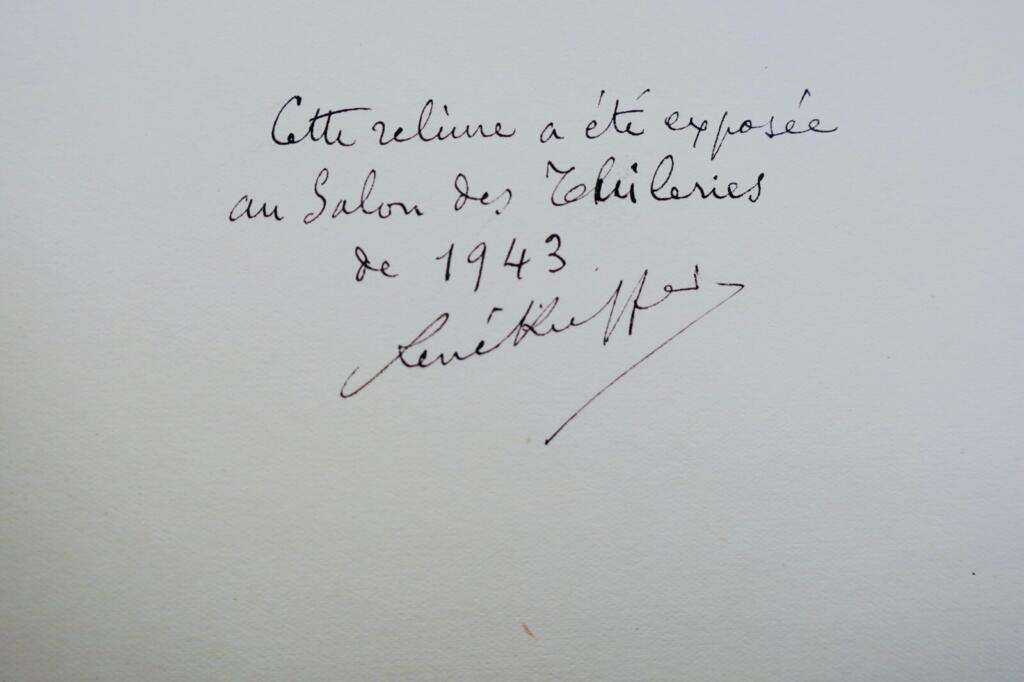 Cette reliure a été exposée
au Salon des Thuileries
de 1943
René Kieffer